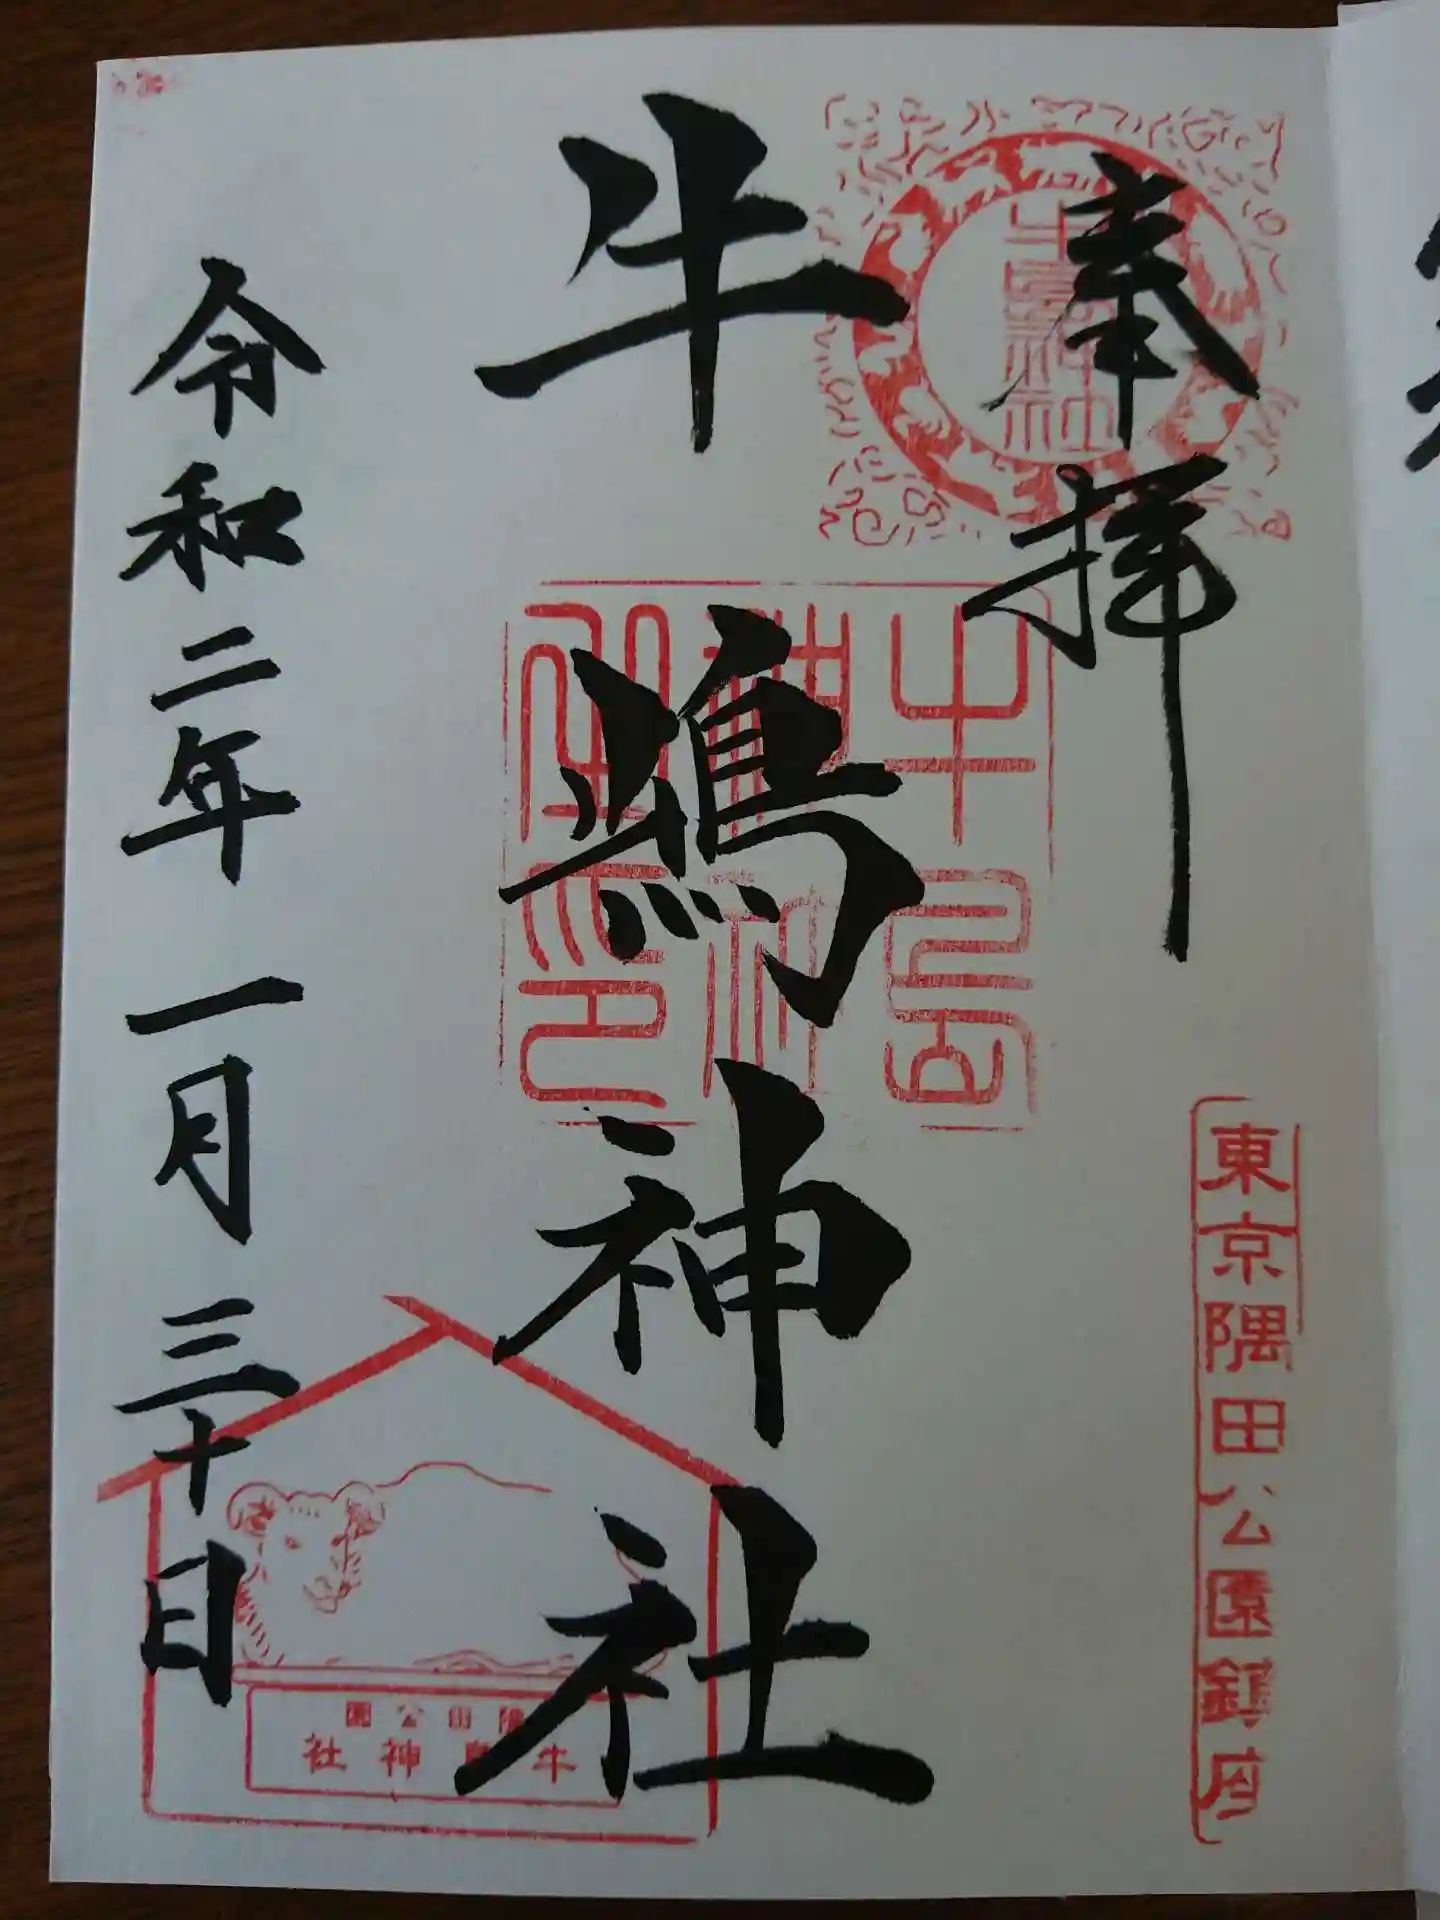 奉拝
東京隅田公園鎮府
牛嶋神社
牛嶋神社
牛島
神社
之印
令和二年一月三十日
隅田公園
牛島神社